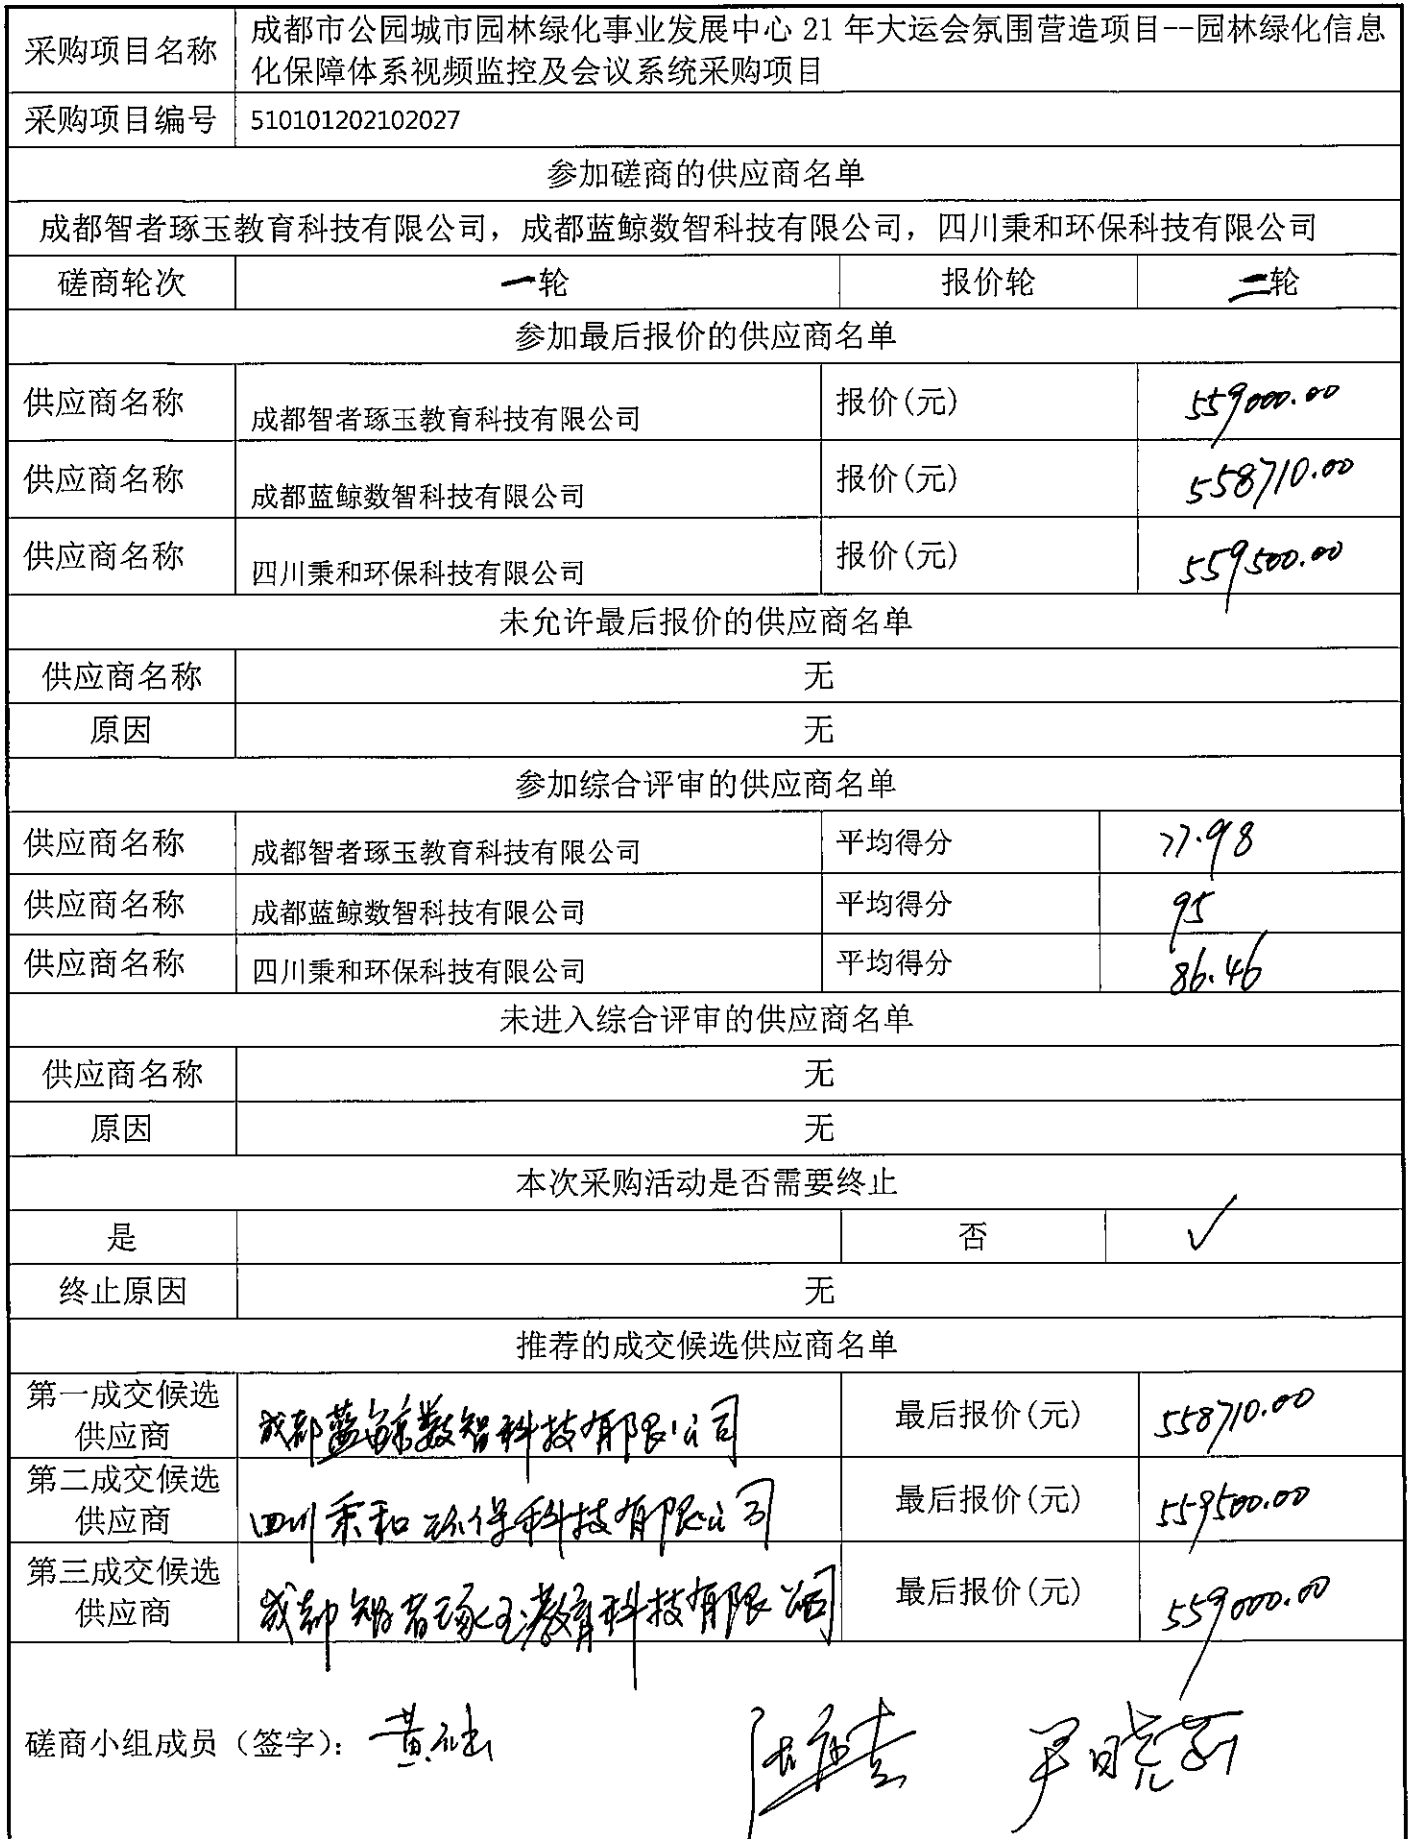 采购项目名称 成都市公园城市园林绿化事业发展中心21年大运会氛围营造项目--园林绿化信息
化保障体系视频监控及会议系统采购项目
采购项目编号 510101202102027
参加磋商的供应商名单
成都智者琢玉教育科技有限公司，成都蓝鲸数智科技有限公司，四川秉和环保科技有限公司
磋商轮次 一轮 报价轮 二轮
参加最后报价的供应商名单
供应商名称 成都智者琢玉教育科技有限公司 报价(元) 559000.00
供应商名称 成都蓝鲸数智科技有限公司 报价(元) 558710.00
供应商名称 四川秉和环保科技有限公司 报价(元) 559500.00
未允许最后报价的供应商名单
供应商名称 无
原因 无
参加综合评审的供应商名单
供应商名称 成都智者琢玉教育科技有限公司 平均得分 77.98
供应商名称 成都蓝鲸数智科技有限公司 平均得分 95
供应商名称 四川秉和环保科技有限公司 平均得分 86.46
未进入综合评审的供应商名单
供应商名称 无
原因 无
本次采购活动是否需要终止
是 否 ✓
终止原因 无
推荐的成交候选供应商名单
第一成交候选
供应商 成都蓝鲸数智科技有限公司 最后报价(元) 558710.00
第二成交候选
供应商 四川秉和环保科技有限公司 最后报价(元) 559500.00
第三成交候选
供应商 成都智者琢玉教育科技有限公司 最后报价(元) 559000.00
磋商小组成员（签字）：